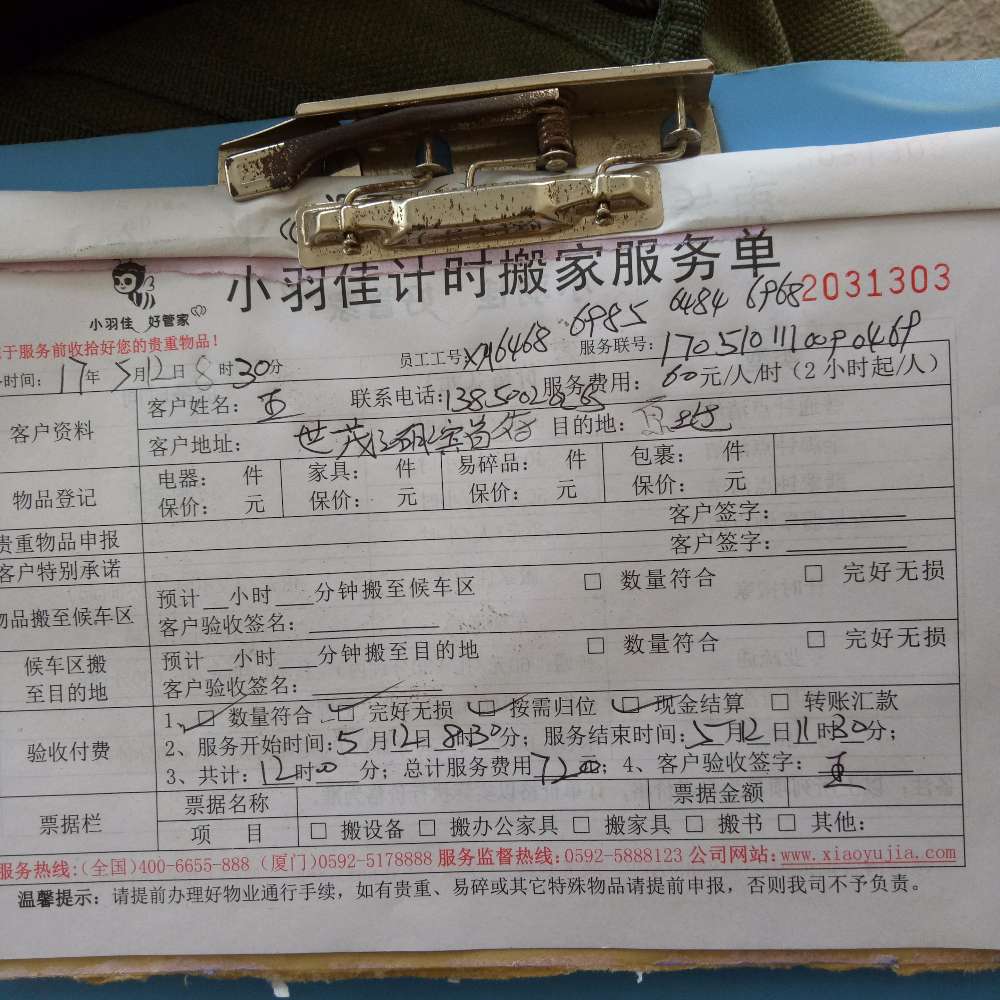 小羽佳计时搬家服务单
2031303
小羽佳 好管家
于服务前收拾好您的贵重物品！
员工工号：XM6468 6985 6484 6968
服务联号：
时间：17年5月12日8时30分
客户资料 客户姓名： 联系电话： 服务费用：60元/人/时（2小时起/人）
客户地址： 目的地：
物品登记 电器： 件 家具： 件 易碎品： 件 包裹： 件
保价： 元 保价： 元 保价： 元 保价： 元
客户签字：
贵重物品申报 客户签字：
客户特别承诺
物品搬至候车区 预计__小时___分钟搬至候车区 □ 数量符合 □ 完好无损
客户验收签名：
候车区搬至目的地 预计__小时___分钟搬至目的地 □ 数量符合 □ 完好无损
客户验收签名：
验收付费 1、☑ 数量符合 ☑ 完好无损 ☑ 按需归位 ☑ 现金结算 □ 转账汇款
2、服务开始时间：5月12日8时30分；服务结束时间：5月12日11时30分；
3、共计：12时00分；总计服务费用720；4、客户验收签字：
票据栏 票据名称 票据金额
项 目 □ 搬设备 □ 搬办公家具 □ 搬家具 □ 搬书 □ 其他：
服务热线：（全国）400-6655-888（厦门）0592-5178888 服务监督热线：0592-5888123 公司网站：www.xiaoyujia.com
温馨提示：请提前办理好物业通行手续，如有贵重、易碎或其它特殊物品请提前申报，否则我司不予负责。